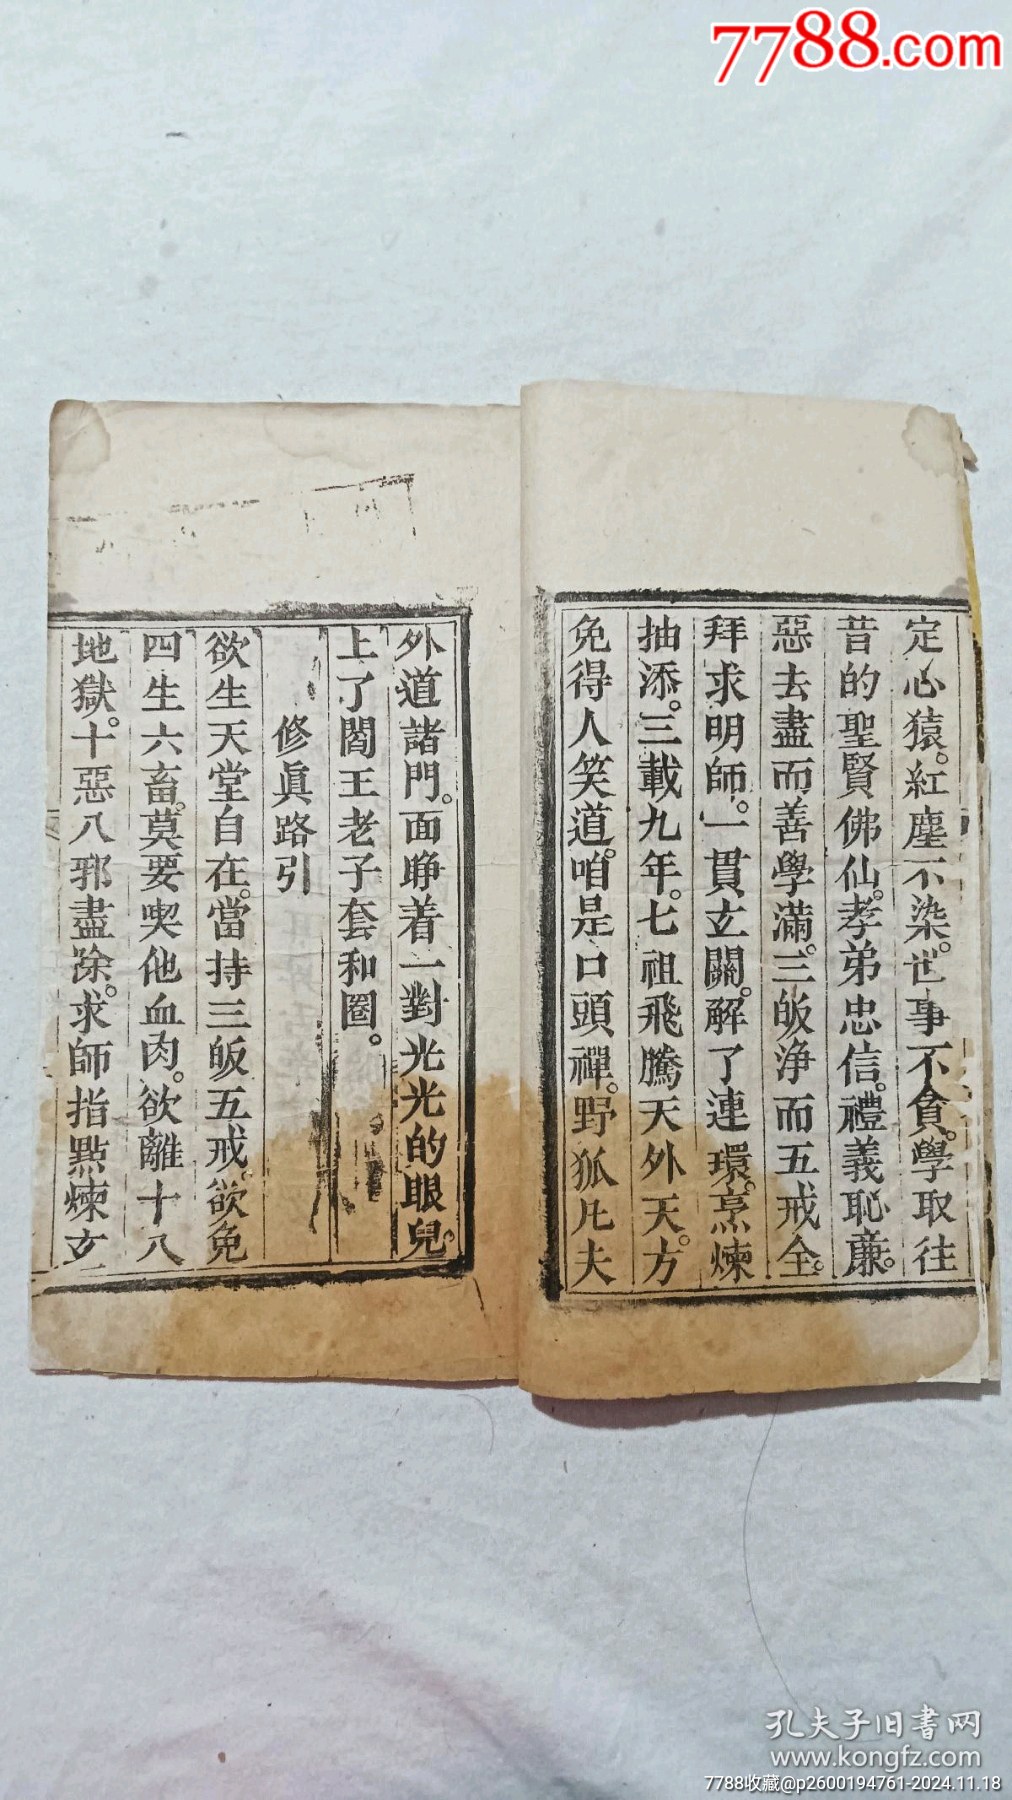 7788.com
定心猿。紅塵不染。世事不貪。學取往
昔的聖賢佛仙。孝弟忠信。禮義恥亷。
惡去盡而善學滿。三皈浄而五戒全。
拜求明師。一貫玄關。解了連環。烹煉
抽添。三載九年。七祖飛騰天外天。方
免得人笑道。咱是口頭禪。野狐凡夫
外道諸門。面睁着一對光光的眼兒。
上了閻王老子套和圈。
修眞路引
欲生天堂自在。當持三皈五戒。欲免
四生六畜。莫要喫他血肉。欲離十八
地獄。十惡八邪盡除。求師指點煉玄
孔夫子旧書网
www.kongfz.com
7788收藏@p2600194761-2024.11.18